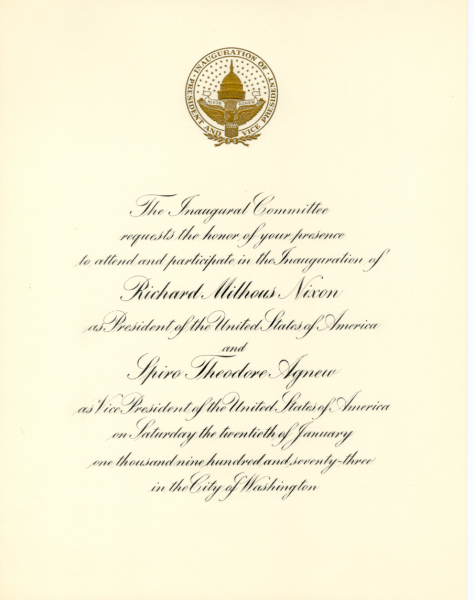 INAUGURATION OF
PRESIDENT AND VICE PRESIDENT
The Inaugural Committee
requests the honor of your presence
to attend and participate in the Inauguration of
Richard Milhous Nixon
as President of the United States of America
and
Spiro Theodore Agnew
as Vice President of the United States of America
on Saturday the twentieth of January
one thousand nine hundred and seventy-three
in the City of Washington